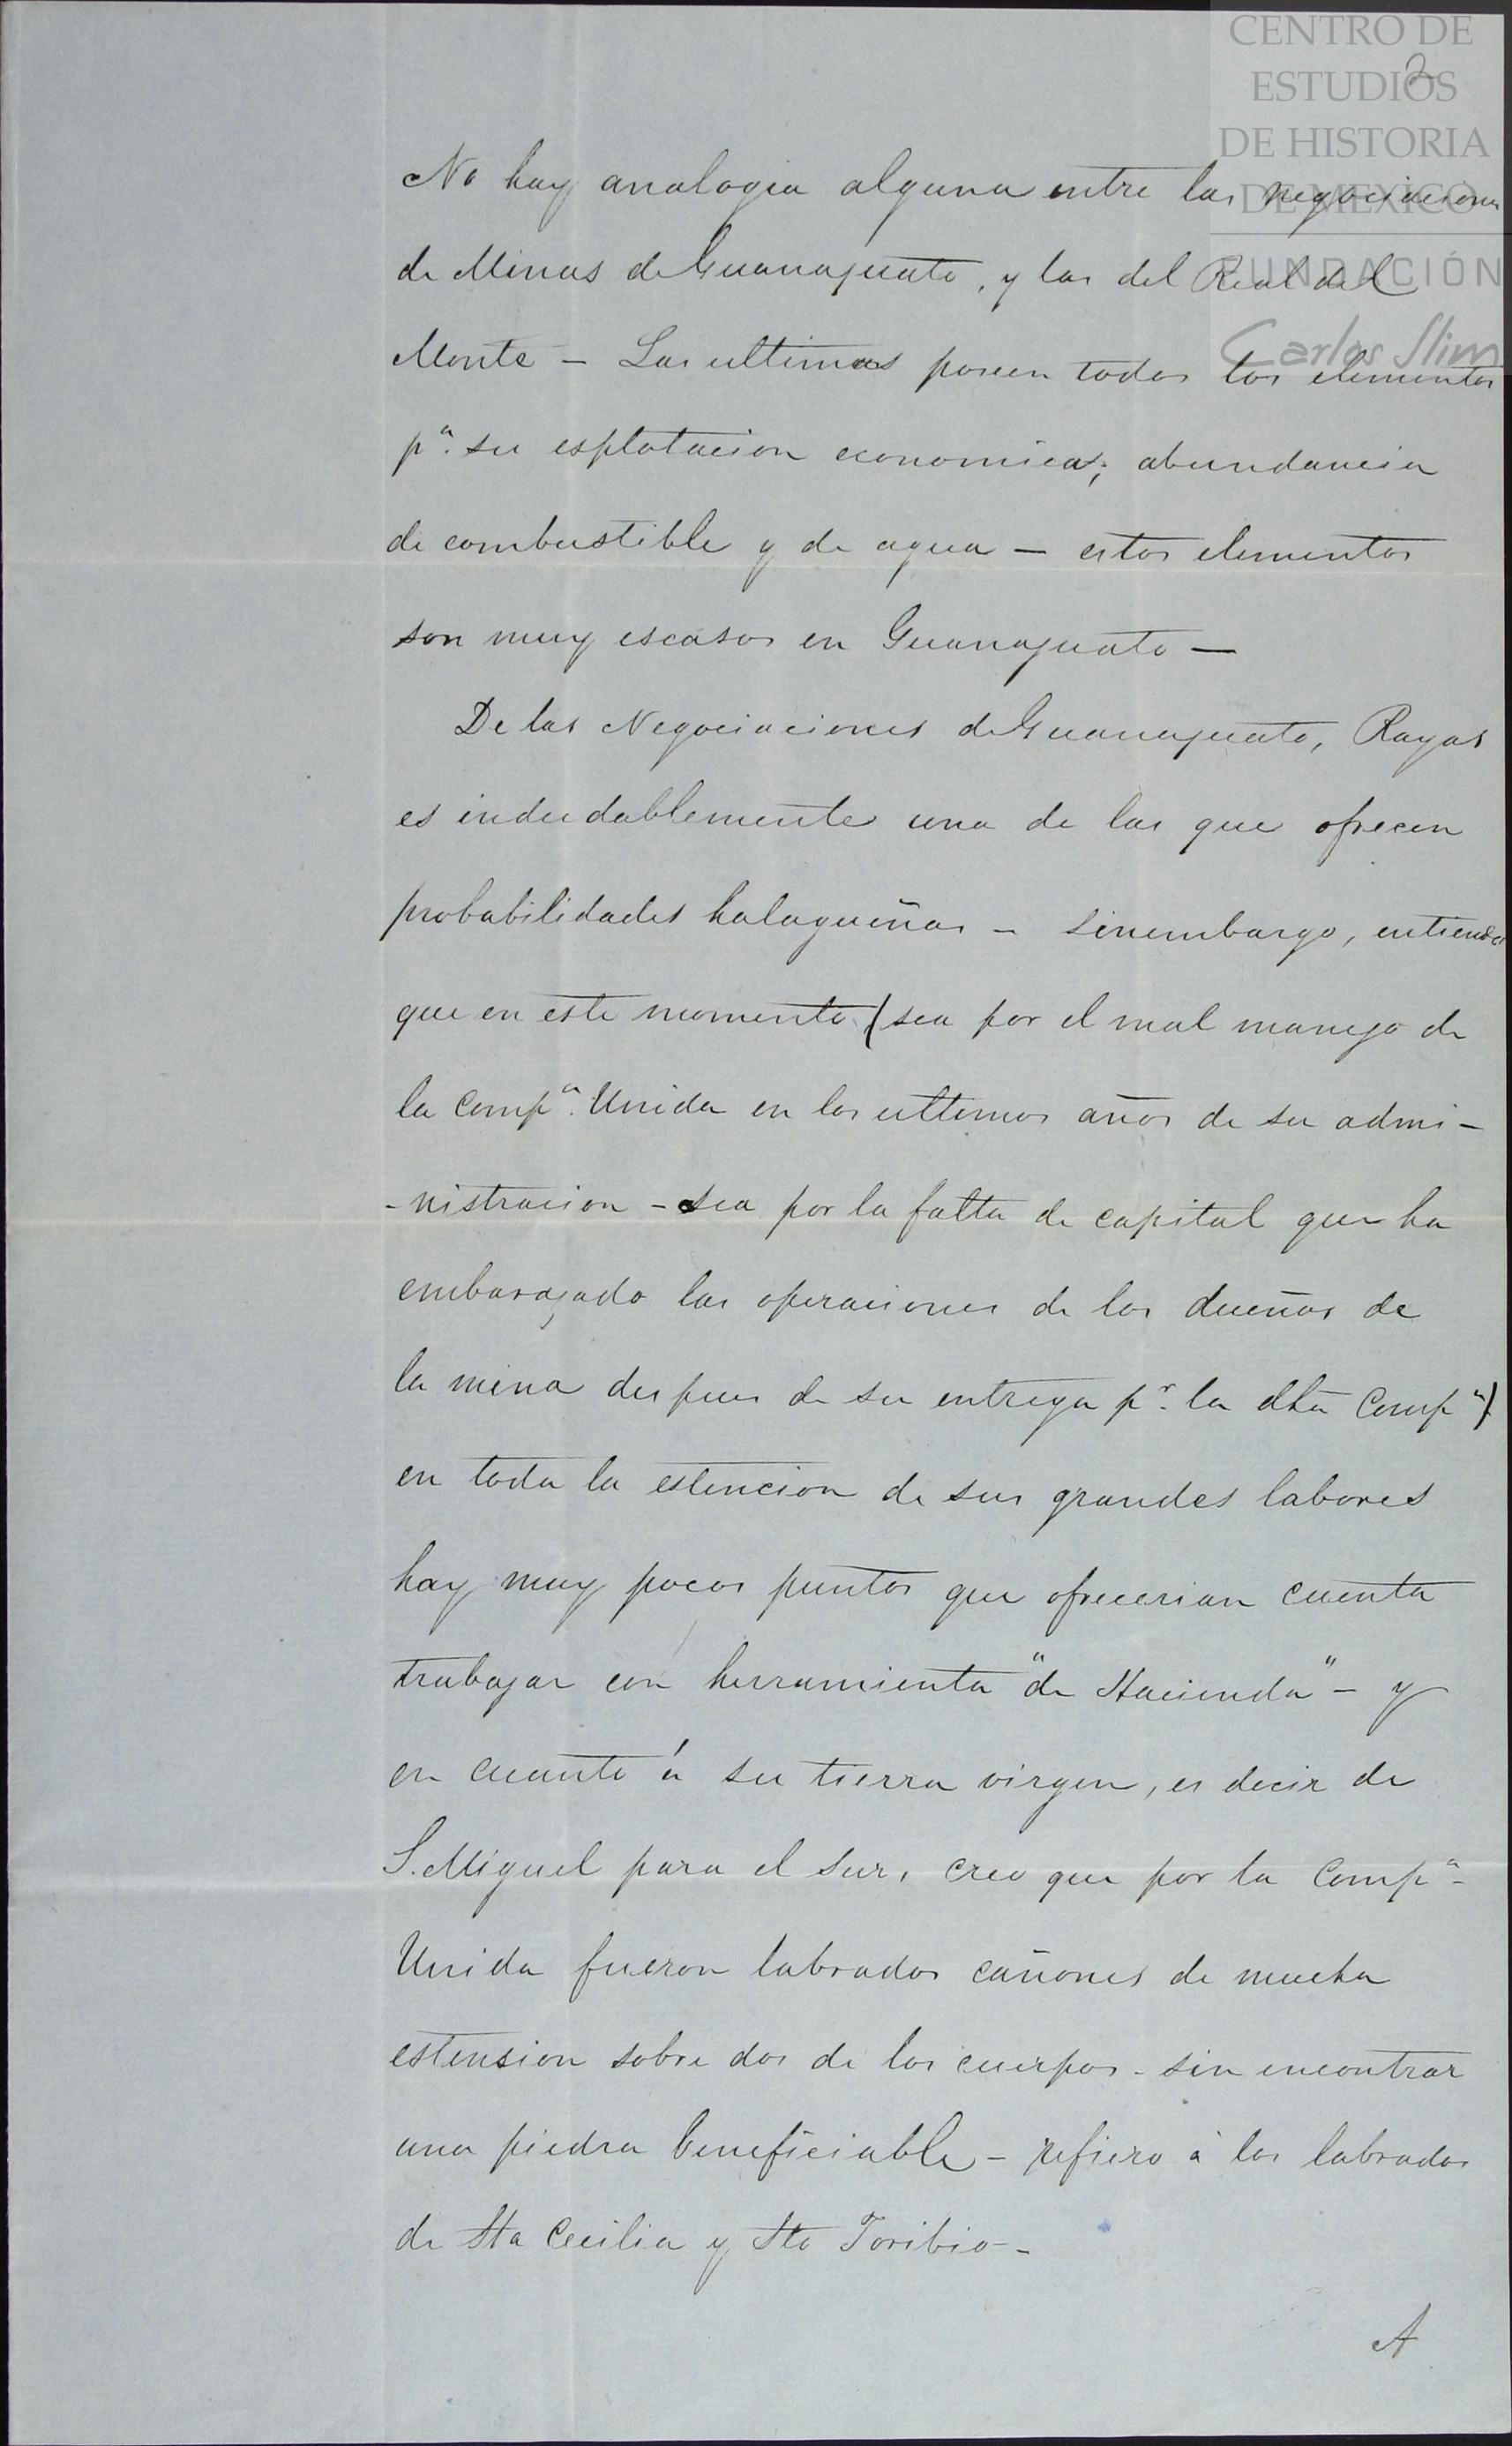 CENTRO DE
ESTUDIOS
DE HISTORIA
DE MEXICO
FUNDACIÓN
Carlos Slim
2
No hay analogia alguna entre las negociaciones
de Minas de Guanajuato, y las del Real del
Monte – Las ultimas poseen todos los elementos
pª. su esplotacion economica; abundancia
de combustible y de agua – estos elementos
son muy escasos en Guanajuato –
De las Negociaciones de Guanajuato, Rayas
es indudablemente una de las que ofrecen
probabilidades halagueñas – sinembargo, entiendo
que en este momento (sea por el mal manejo de
la Compª. Unida en los ultimos años de su admi-
-nistracion – sea por la falta de capital que ha
embarazado las operaciones de los dueños de
la mina despues de su entrega pr. la dha Compª)
en toda la estencion de sus grandes labores
hay muy pocos puntos que ofrecerian cuenta
trabajar con herramienta "de Hacienda" – y
en cuanto á su tierra virgen, es decir de
S. Miguel para el Sur, creo que por la Compª
Unida fueron labrados cañones de mucha
estension sobre dos de los cuerpos – sin encontrar
una piedra beneficiable – refiero à los labrados
de Sta Cecilia y Sto Toribio –
A